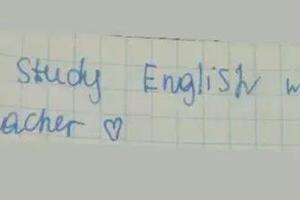 Study English w
acher ♡